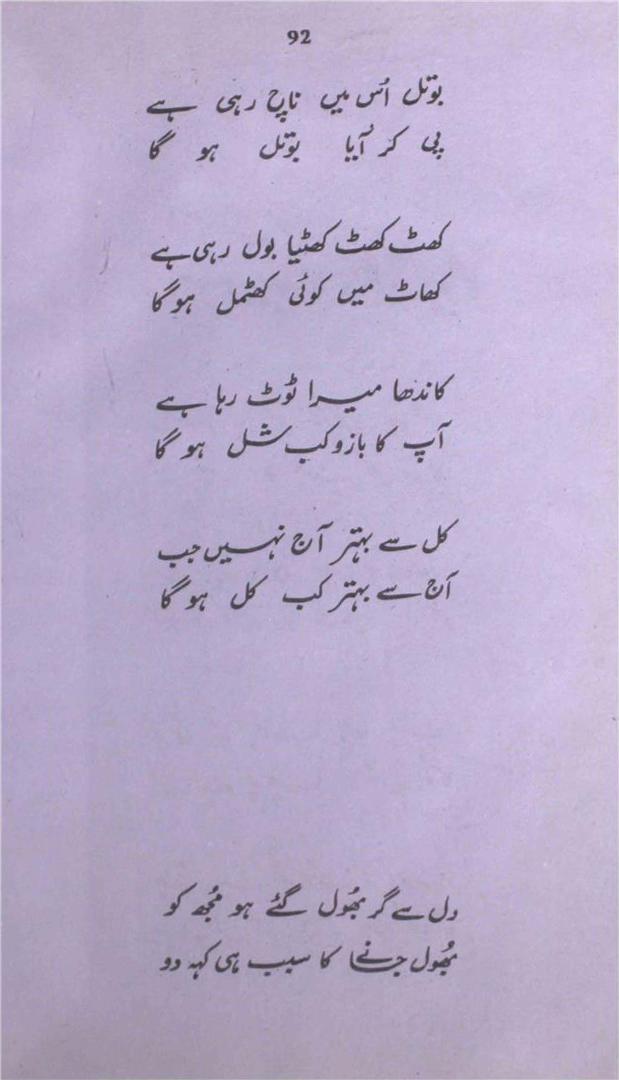 92
بوتل اُس میں ناچ رہی ہے
پی کر آیا بوتل ہو گا
کھٹ کھٹ کھٹیا بول رہی ہے
کھاٹ میں کوئی کھٹمل ہو گا
کاندھا میرا ٹوٹ رہا ہے
آپ کا بازو کب شل ہو گا
کل سے بہتر آج نہیں جب
آج سے بہتر کب کل ہو گا
دل سے گر بھُول گئے ہو مُجھ کو
بھُول جانے کا سبب ہی کہہ دو